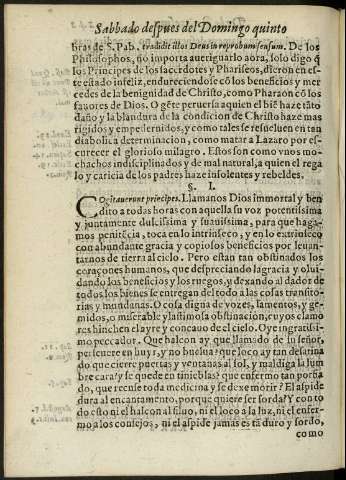 Sabbado despues del Domingo quinto
bras de S. Pab. tradidit illos Deus in reprobum sensum. De los
Philosophos, no importa aueriguarlo aora, solo digo q̃
los Principes de los sacerdotes y Phariseos, dieron en es-
te estado infeliz, endureciendose cõ los beneficios y mer-
cedes de la benignidad de Christo, como Pharaon cõ los
fauores de Dios. O gẽte peruersa aquien el biẽ haze tãto
daño y la blandura de la condicion de Christo haze mas
rigidos y empedernidos, y como tales se resueluen en tan
diabolica determinacion, como matar a Lazaro por es-
curecer el glorioso milagro. Estos son como vnos mo-
chachos indisciplinados y de mal natural, a quien el rega
lo y caricia de los padres haze insolentes y rebeldes.
§. I.
Cogitauerunt principes. Llamanos Dios immortal y ben
dito a todas horas con aquella su voz potentissima
y juntamente dulcissima y suauissima, para que haga-
mos penitẽcia, toca en lo intrinseco, y en lo extrinseco
con abundante gracia y copiosos beneficios por leuan-
tarnos de tierra al cielo. Pero estan tan obstinados los
coraçones humanos, que despreciando la gracia y olui-
dando los beneficios y los ruegos, y dexando al dador de
todos los bienes se entregan del todo a las cosas transito-
rias y mundanas. O cosa digna de vozes, lamentos, y ge-
midos, o miserable y lastimosa obstinación, cuyos clamo
res hinchen el ayre y concauo de el cielo. Oye ingratissi-
mo peccador. Que halcon ay que llamado de su señor,
perseuere en huyr, y no buelua? que loco ay tan desatina
do que cierre puertas y ventanas al sol, y maldiga la lum
bre cara? y se quede en tinieblas? que enfermo tan porfia
do, que recuse toda medicina y se dexe morir? El aspide
dura al encantamento, porque quiere ser sorda? Y con to
do esto ni el halcon al siluo, ni el loco a la luz, ni el enfer-
mo a los consejos, ni el aspide jamas es tã duro y sordo,
como